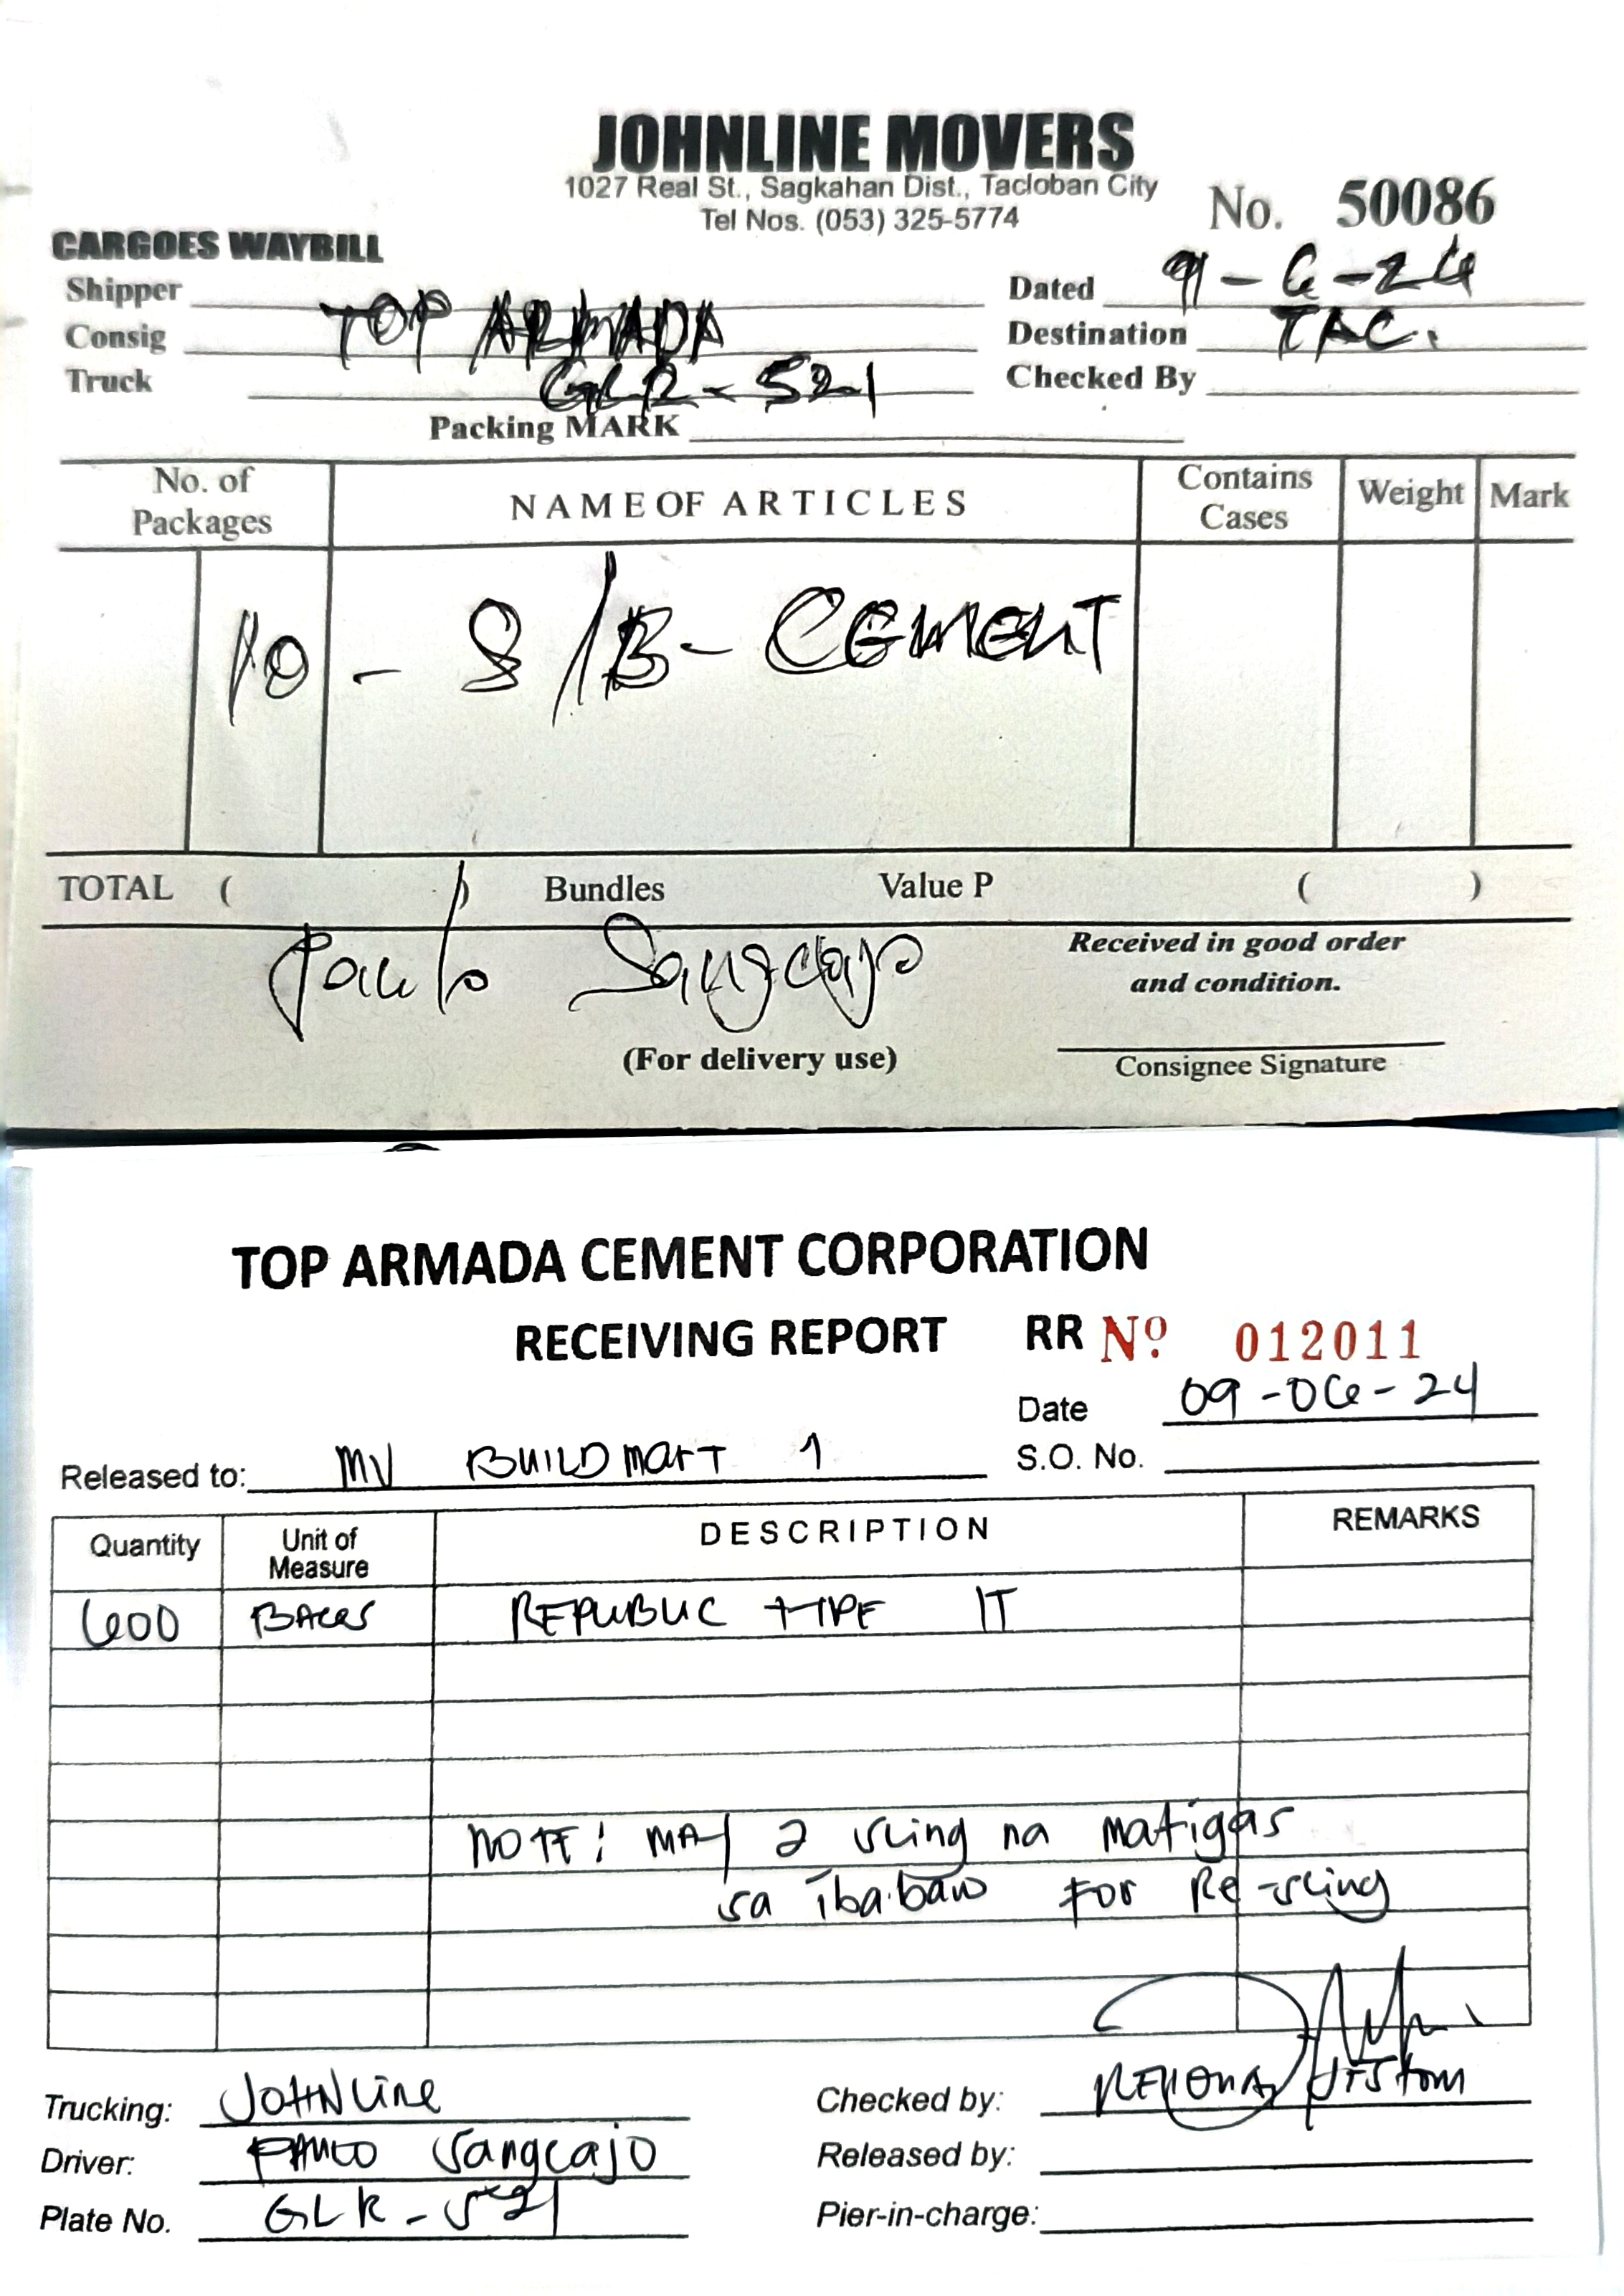 JOHNLINE MOVERS
1027 Real St., Sagkahan Dist., Tacloban City
Tel Nos. (053) 325-5774
No. 50086
CARGOES WAYBILL
Shipper
Dated 9-6-24
Consig TOP ARMADA
Destination TAC.
Truck GLR-521
Checked By
Packing MARK
No. of Packages NAME OF ARTICLES Contains Cases Weight Mark
10 - S/B - CEMENT
TOTAL ( ) Bundles Value P ( )
Paulo Sangcajo
Received in good order
and condition.
(For delivery use)
Consignee Signature
TOP ARMADA CEMENT CORPORATION
RECEIVING REPORT RR Nº 012011
Date 09-06-24
Released to: MV BUILDMART 1
S.O. No.
Quantity Unit of Measure DESCRIPTION REMARKS
600 BAGS REPUBLIC TYPE 1T
NOTE: MAY 2 sling na matigas
sa ibabaw FOR Re-sling
Trucking: JOHNLine
Checked by:
Driver: PAULO Sangcajo
Released by:
Plate No. GLR-521
Pier-in-charge: